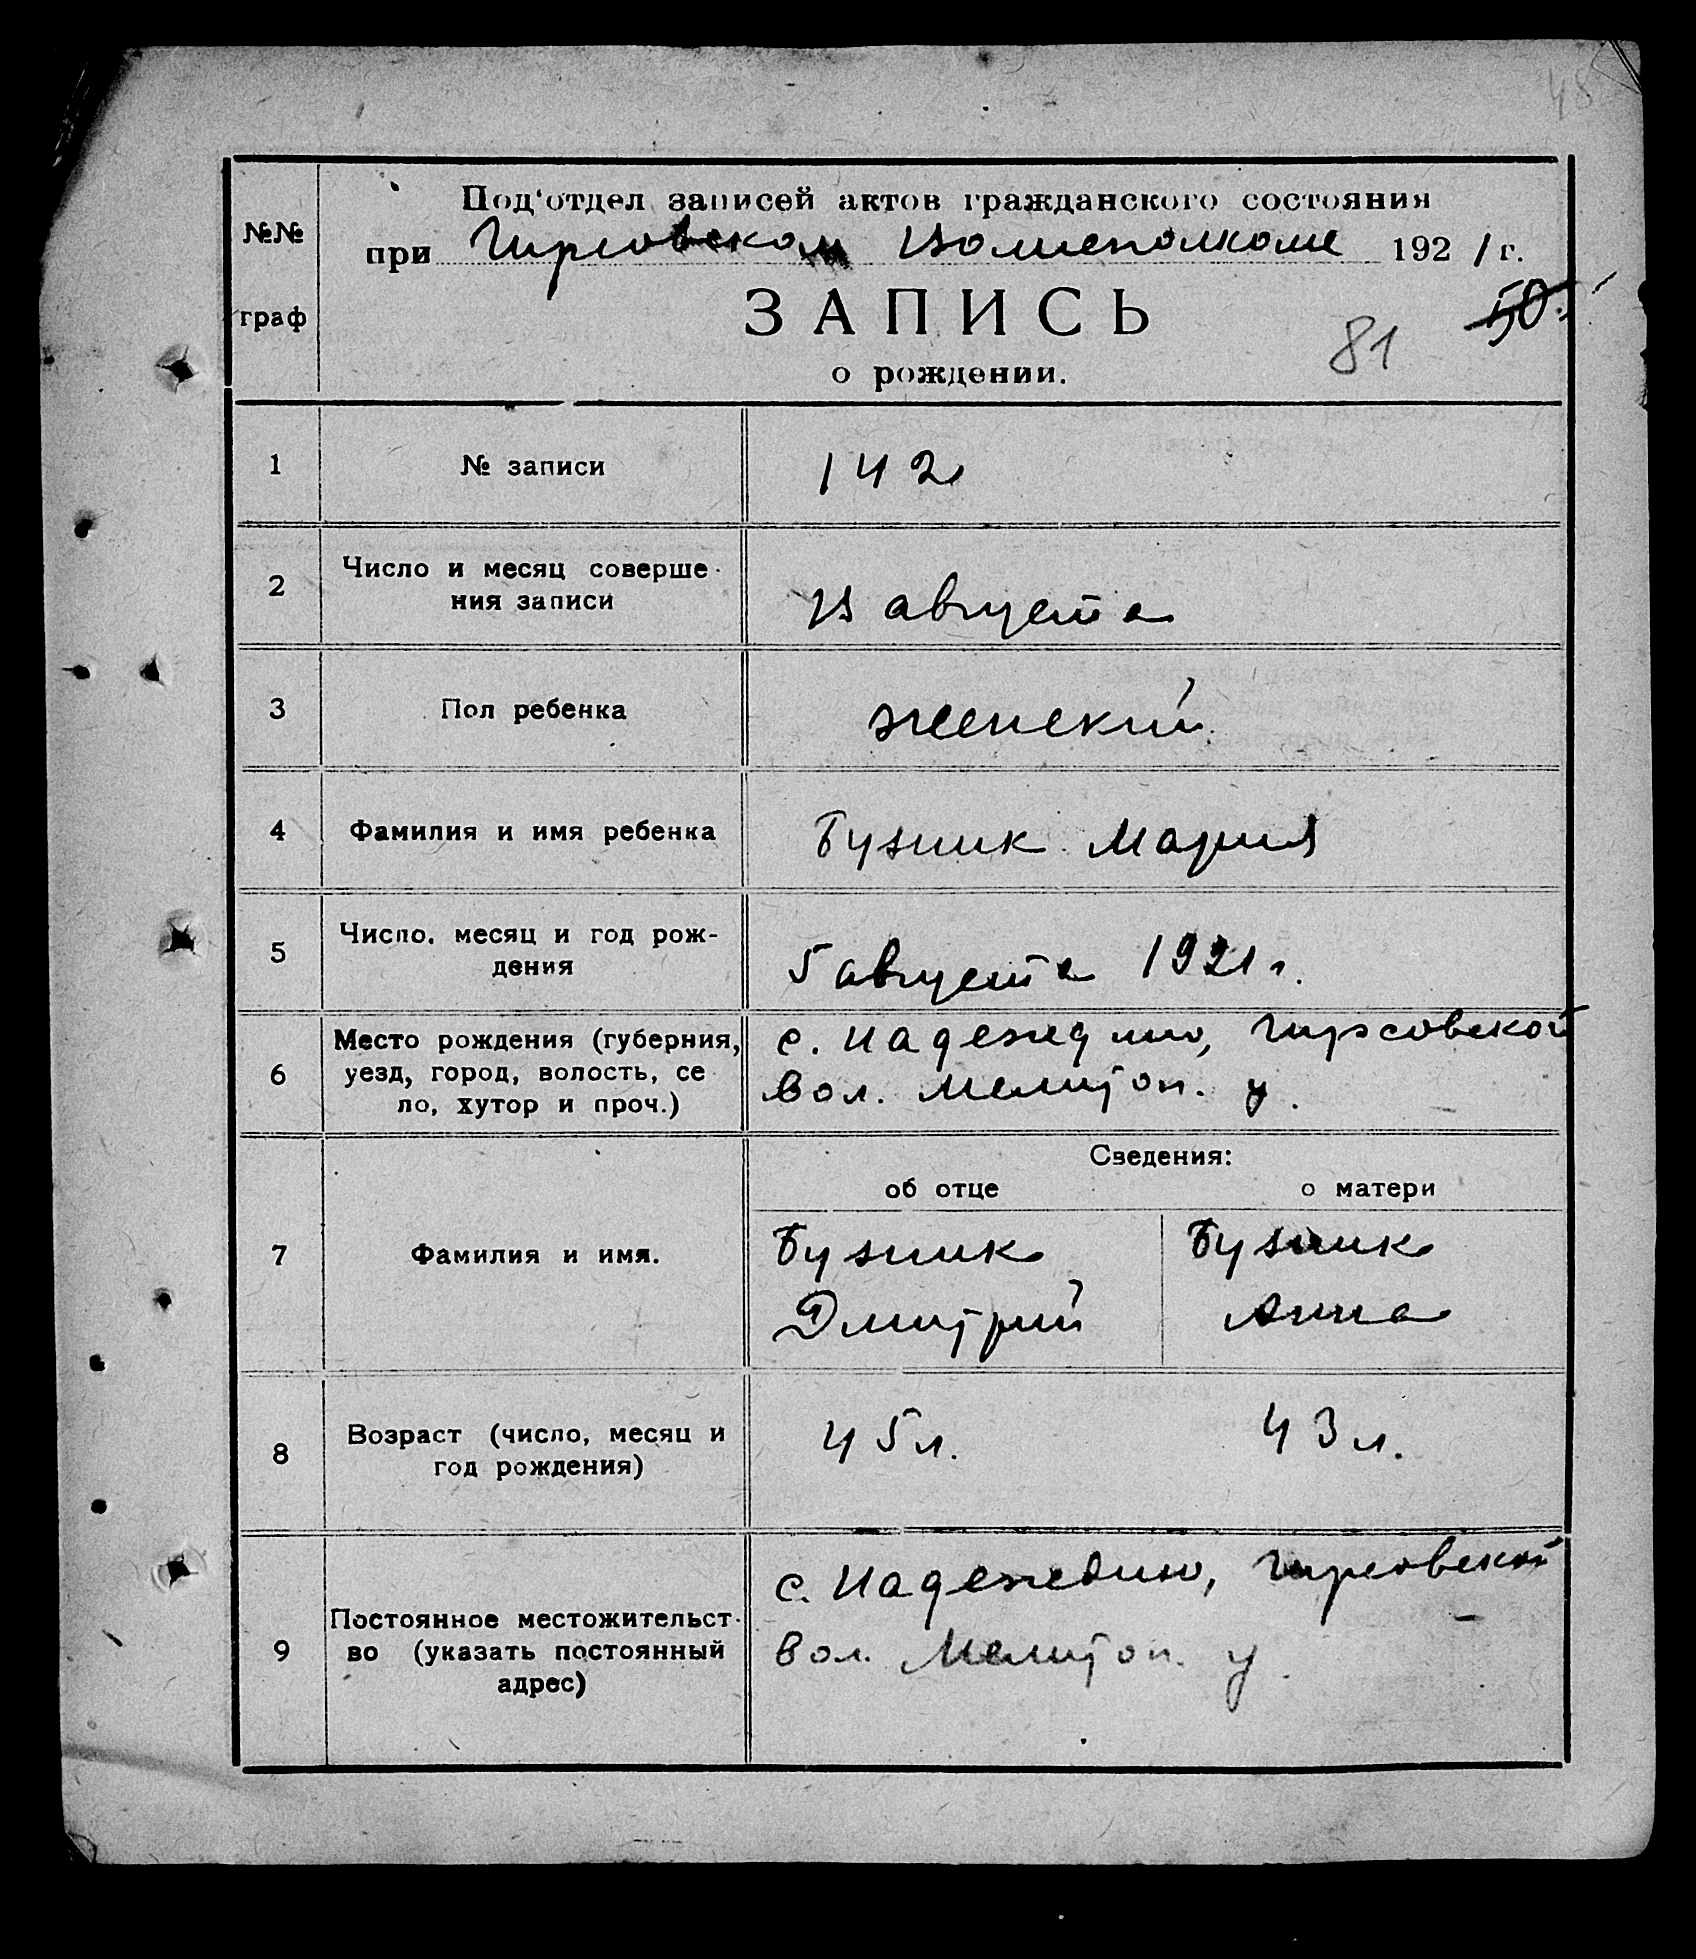 48
№№
граф
Под'отдел записей актов гражданского состояния
при Гирсовском Волисполкоме 1921 г.
ЗАПИСЬ
50.
81
о рождении.
1
№ записи
142
2
Число и месяц соверше-
ния записи
августа
3
Пол ребенка
женский
4
Фамилия и имя ребенка
Бузник Мария
5
Число, месяц и год рож-
дения
5 августа 1921 г.
6
Место рождения (губерния,
уезд, город, волость, се
ло, хутор и проч.)
с. Надеждино, Гирсовской
вол. Мелитоп. у.
Сведения:
об отце
о матери
7
Фамилия и имя.
Бузник
Дмитрий
Бузник
Анна
8
Возраст (число, месяц и
год рождения)
45 л.
43 л.
9
Постоянное местожительст-
во (указать постоянный
адрес)
с. Надеждино, Гирсовской
вол. Мелитоп. у.